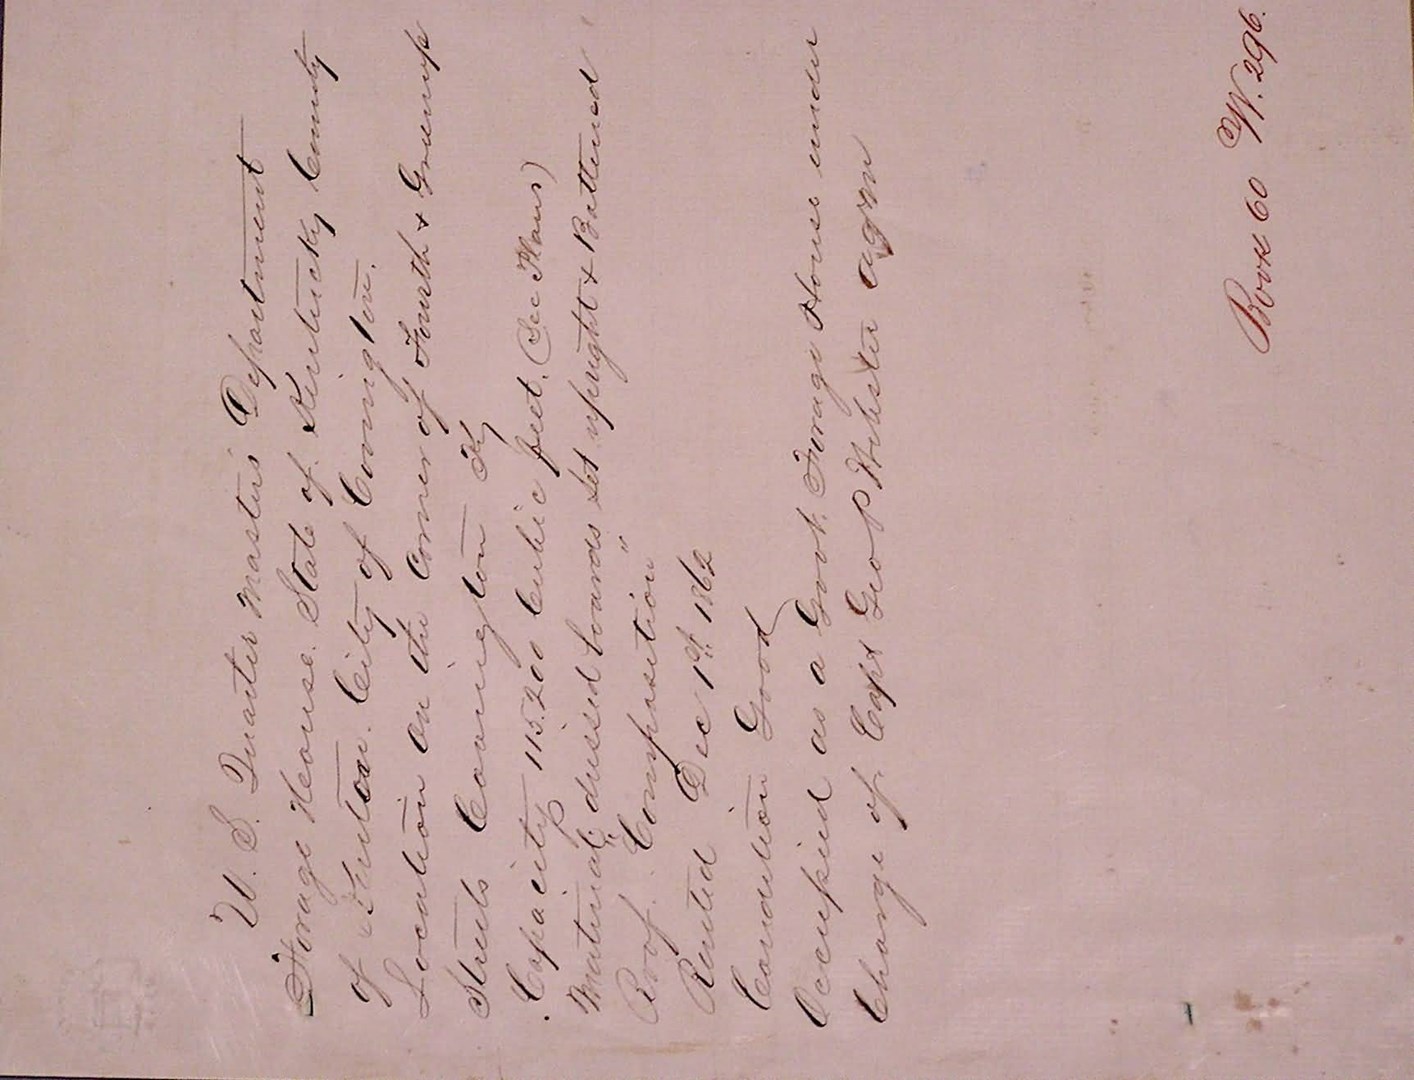 U. S. Quarter Master's Department
Forage House. State of Kentucky County
of Kenton. City of Covington.
Location on the Corner of Fourth & Greenup
Streets Covington Ky
Capacity 115.200 Cubic feet. (See Plans)
Material, dressed boards set upright & Battened
Roof. "Composition"
Rented Dec 1st 1862
Condition Good
Occupied as a Govt. Forage House under
Charge of. Capt Geo P Webster aqm
Book 60 W. 296.